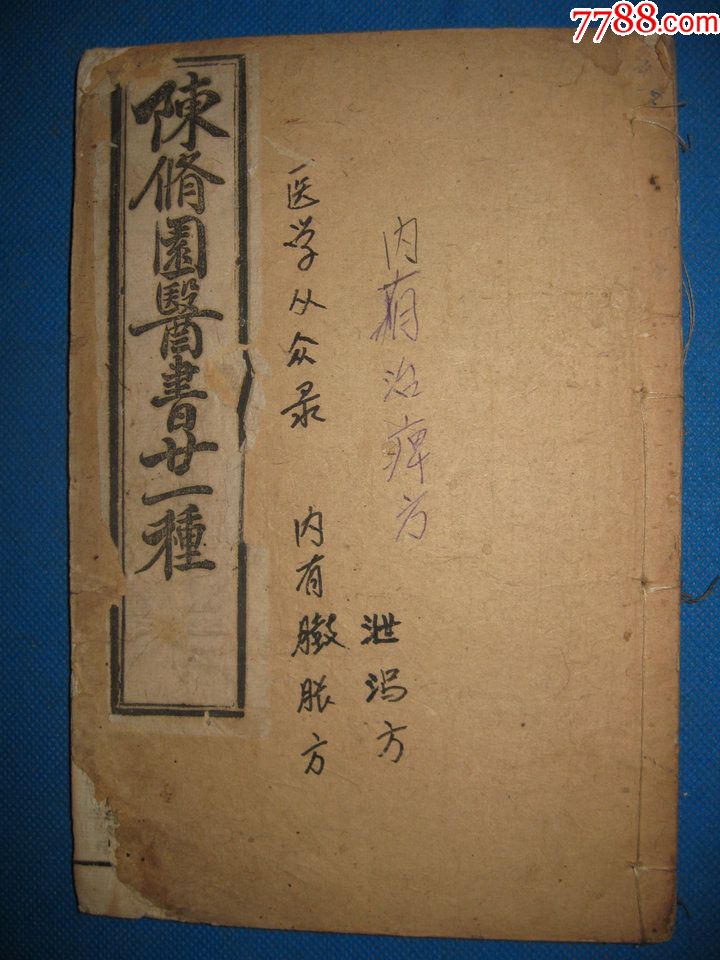 7788.com
陳脩園醫書廿一種
内有治痺方
医学从众录 内有臌胀方
泄泻方